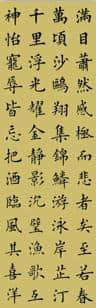 滿目蕭然感極而悲者矣至若春
萬頃沙鷗翔集錦鱗游泳岸芷汀
千里浮光耀金靜影沉璧漁歌互
神怡寵辱皆忘把酒臨風其喜洋